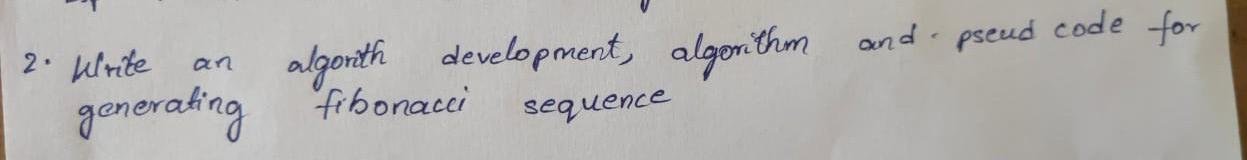 2. Write an algorith development, algorithm and pseud code for
generating fibonacci sequence